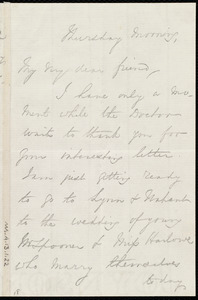 Thursday Morning,
My very dear friend,
I have only a mo-
ment while the Doctor
waits to thank you for
your interesting letter
I am just getting ready
to go to Lynn & Nahant
to the wedding of young
& Miss Harlowe
who marry themselves
today